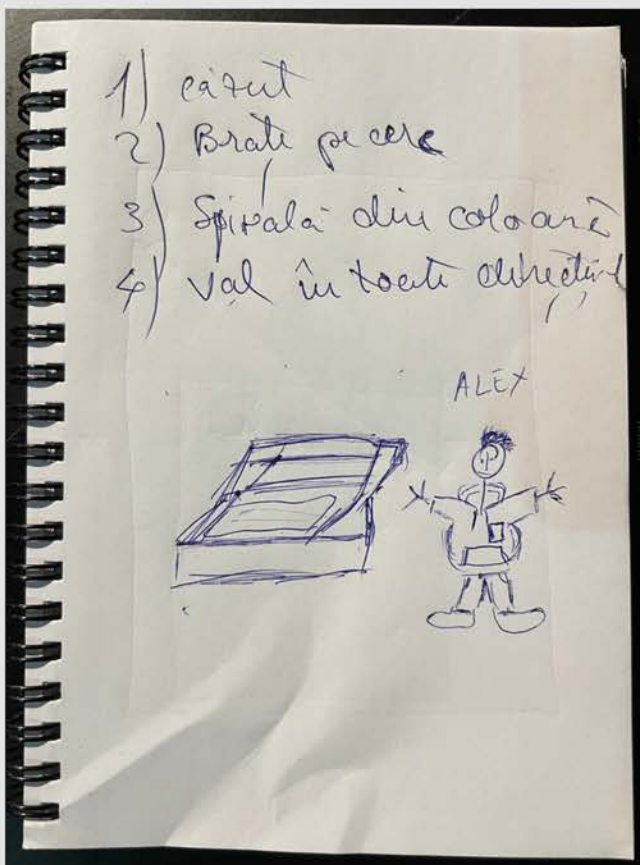 1) căzut
2) Brațe pe cerc
3) Spirală din coloană
4) Val în toate direcțiil
ALEX